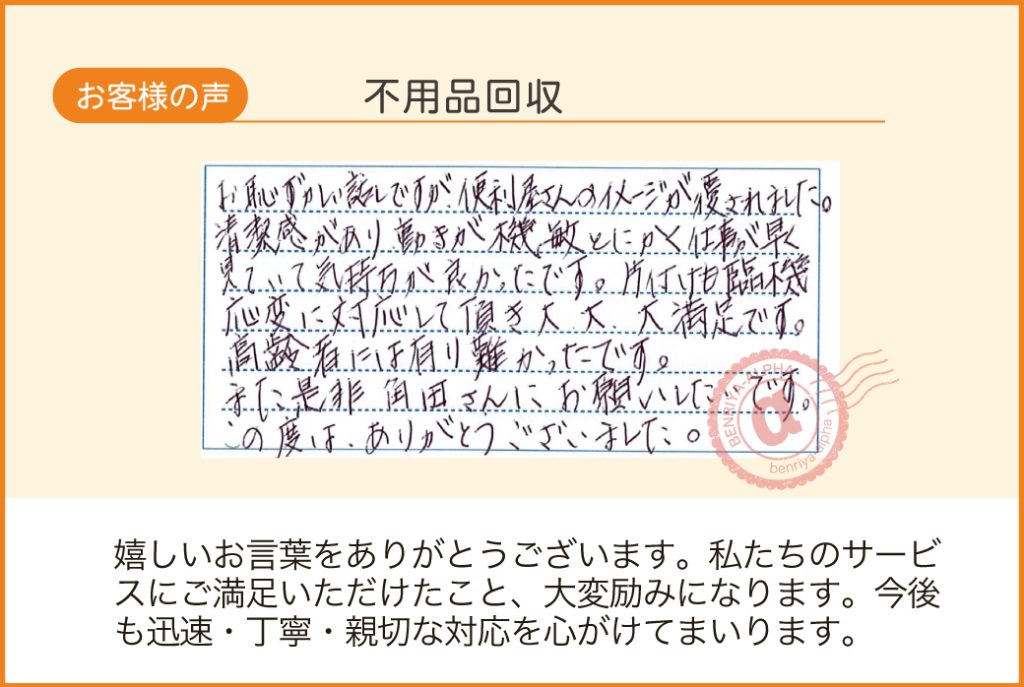 お客様の声
不用品回収
お恥ずかしい話しですが、便利屋さんのイメージが覆されました。
清潔感があり動きが機敏とにかく仕事が早く
見ていて気持ちが良かったです。片付けも臨機
応変に対応して頂き大、大、大満足です。
高齢者には有り難かったです。
また是非角田さんにお願いしたいです。
この度は、ありがとうございました。
BENRIYA-ALPHA
α
benriya alpha
嬉しいお言葉をありがとうございます。私たちのサービ
スにご満足いただけたこと、大変励みになります。今後
も迅速・丁寧・親切な対応を心がけてまいります。